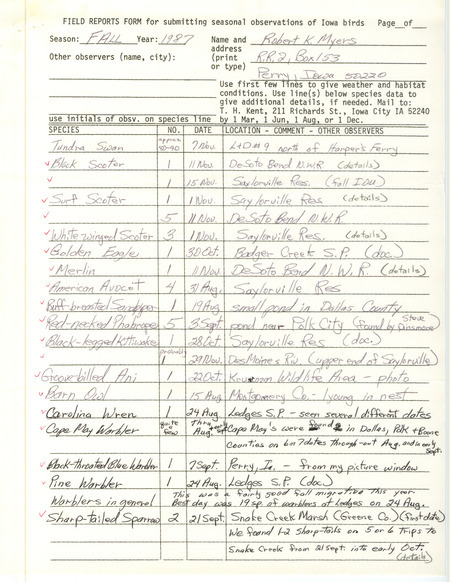 FIELD REPORTS FORM for submitting seasonal observations of Iowa birds Page__of__
Season: FALL Year: 1987 Name and Robert K. Myers
Other observers (name, city): address (print or type) R.R.2, Box 153
Perry, Iowa 50220
Use first few lines to give weather and habitat
conditions. Use line(s) below species data to
give additional details, if needed. Mail to:
T. H. Kent, 211 Richards St., Iowa City IA 52240
use initials of obsv. on species line by 1 Mar, 1 Jun, 1 Aug, or 1 Dec.
SPECIES NO. DATE LOCATION - COMMENT - OTHER OBSERVERS
Tundra Swan approx 7 Nov. L+D #9 north of Harper's Ferry
✓ Black Scoter 1 11 Nov. DeSoto Bend N.W.R (details)
✓ 1 15 Nov. Saylorville Res. (fall IOU)
✓ Surf Scoter 1 1 Nov. Saylorville Res (details)
✓ 5 11 Nov. DeSoto Bend N.W.R
✓ White-winged Scoter 3 1 Nov. Saylorville Res. (details)
✓ Golden Eagle 1 30 Oct. Badger Creek S.P. (doc.)
✓ Merlin 1 11 Nov. DeSoto Bend N.W.R. (details)
✓ American Avocet 4 31 Aug. Saylorville Res
Buff-breasted Sandpiper 1 19 Aug. small pond in Dallas County
✓ Red-necked Phalarope 5 3 Sept. pond near Polk City (found by Steve Dinsmore)
✓ Black-legged Kittiwake 1 28 Oct Saylorville Res (doc.)
1 29 Nov. Des Moines Riv. (upper end of Saylorville)
✓ Groove-billed Ani 1 22 Oct. Wildlife Area - photo
✓ Barn Owl 1 15 Aug Montgomery Co. - young in nest
✓ Carolina Wren 1 24 Aug. Ledges S.P. - seen several different dates
✓ Cape May Warbler quite a few Thru Aug. Cape May's were found in Dallas, Polk + Boone
Counties on 6 or 7 dates through-out Aug. and in early Sept.
✓ Black-throated Blue Warbler 1 7 Sept. Perry, Ia. - from my picture window
✓ Pine Warbler 1 24 Aug. Ledges S.P. (doc.)
Warblers in general This was a fairly good fall migration this year
Best day was 19 sp. of warblers at Ledges on 24 Aug.
✓ Sharp-tailed Sparrow 2 21 Sept. Snake Creek Marsh (Greene Co.) (first date)
We found 1-2 Sharp-tails on 5 or 6 trips to
Snake Creek from 21 Sept. into early Oct.
(details)